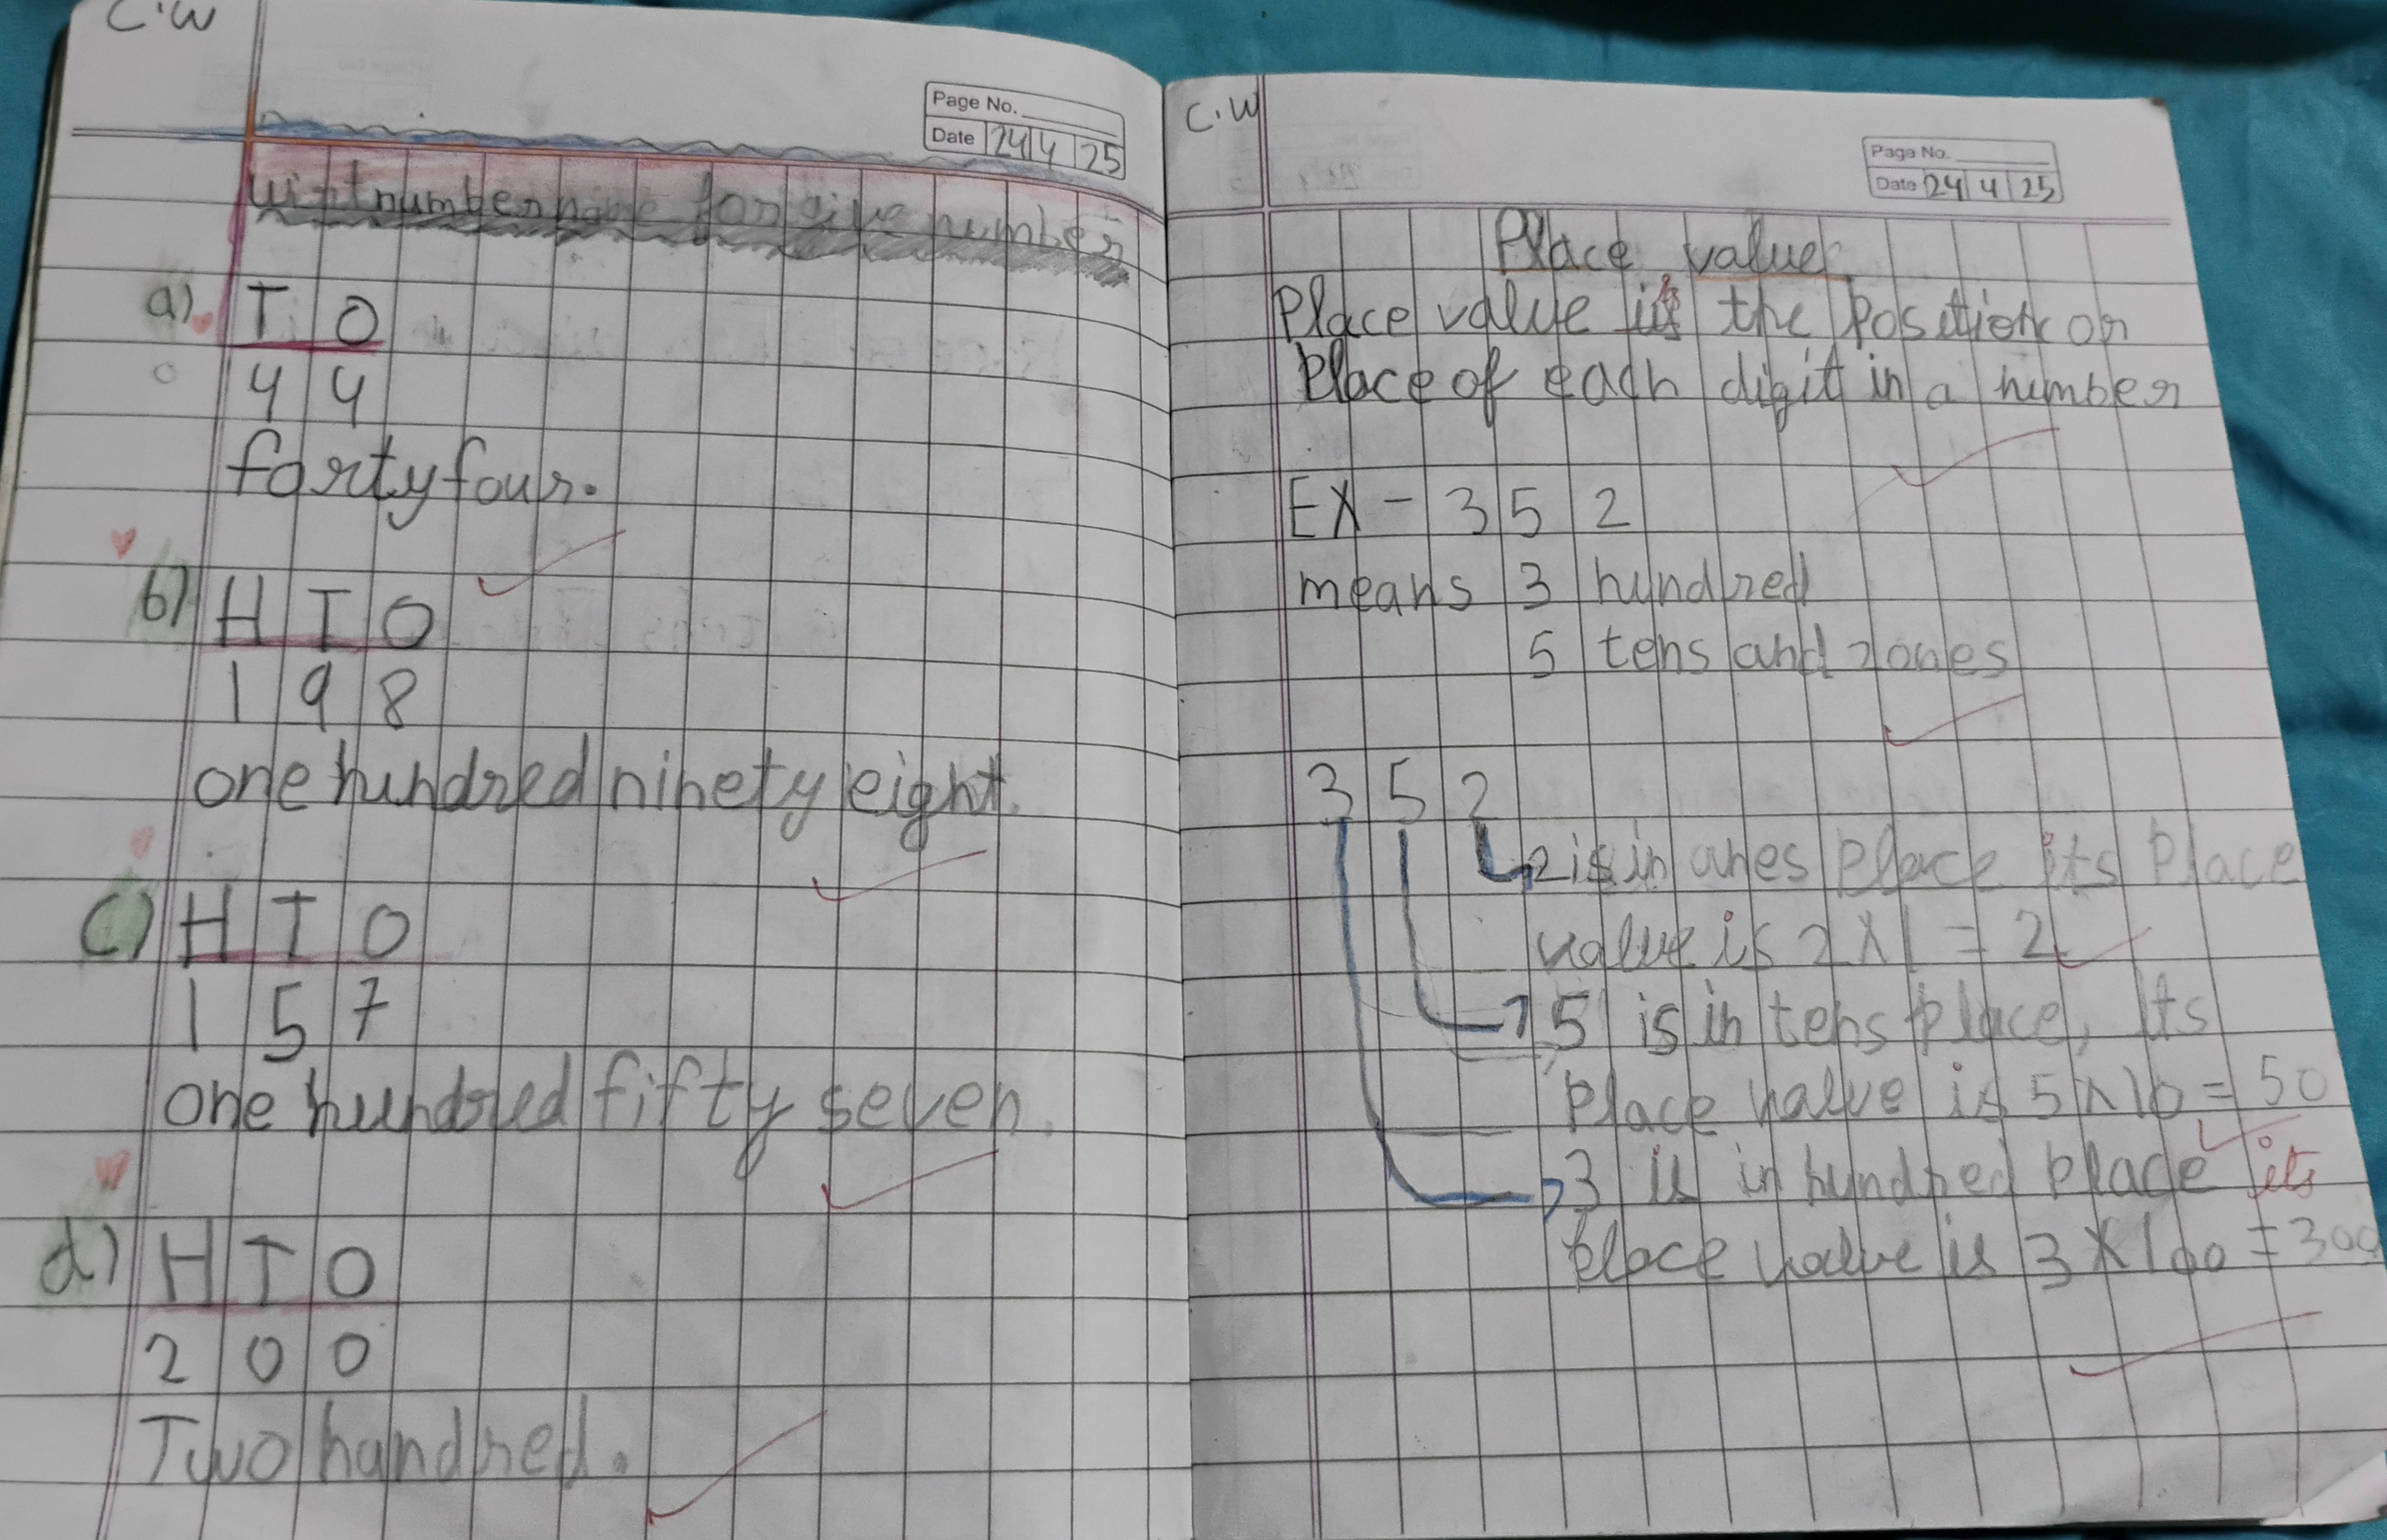 C.W
Page No.
Date 24 4 25
wirt number name for give number
a) T O
4 4
forty four.
b) H T O
1 9 8
one hundred ninety eight.
c) H T O
1 5 7
one hundred fifty seven.
d) H T O
2 0 0
Two handred.
C.W
Page No.
Date 24 4 25
Place value
Place value is the Position or
Place of each digit in a number
EX - 3 5 2
means 3 hundred
5 tens and 2 ones
3 5 2
2 is in ones place its Place
value is 2 X 1 = 2
5 is in tens place, Its
Place value is 5 X 10 = 50
3 is in hundred place its
place value is 3 X 100 = 300